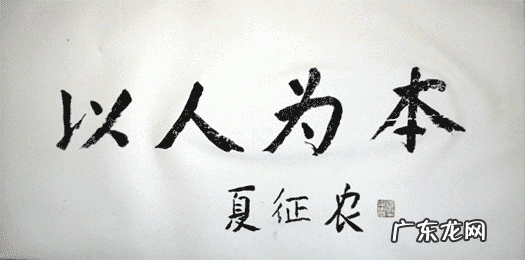 以人为本
夏征农
广东龙网